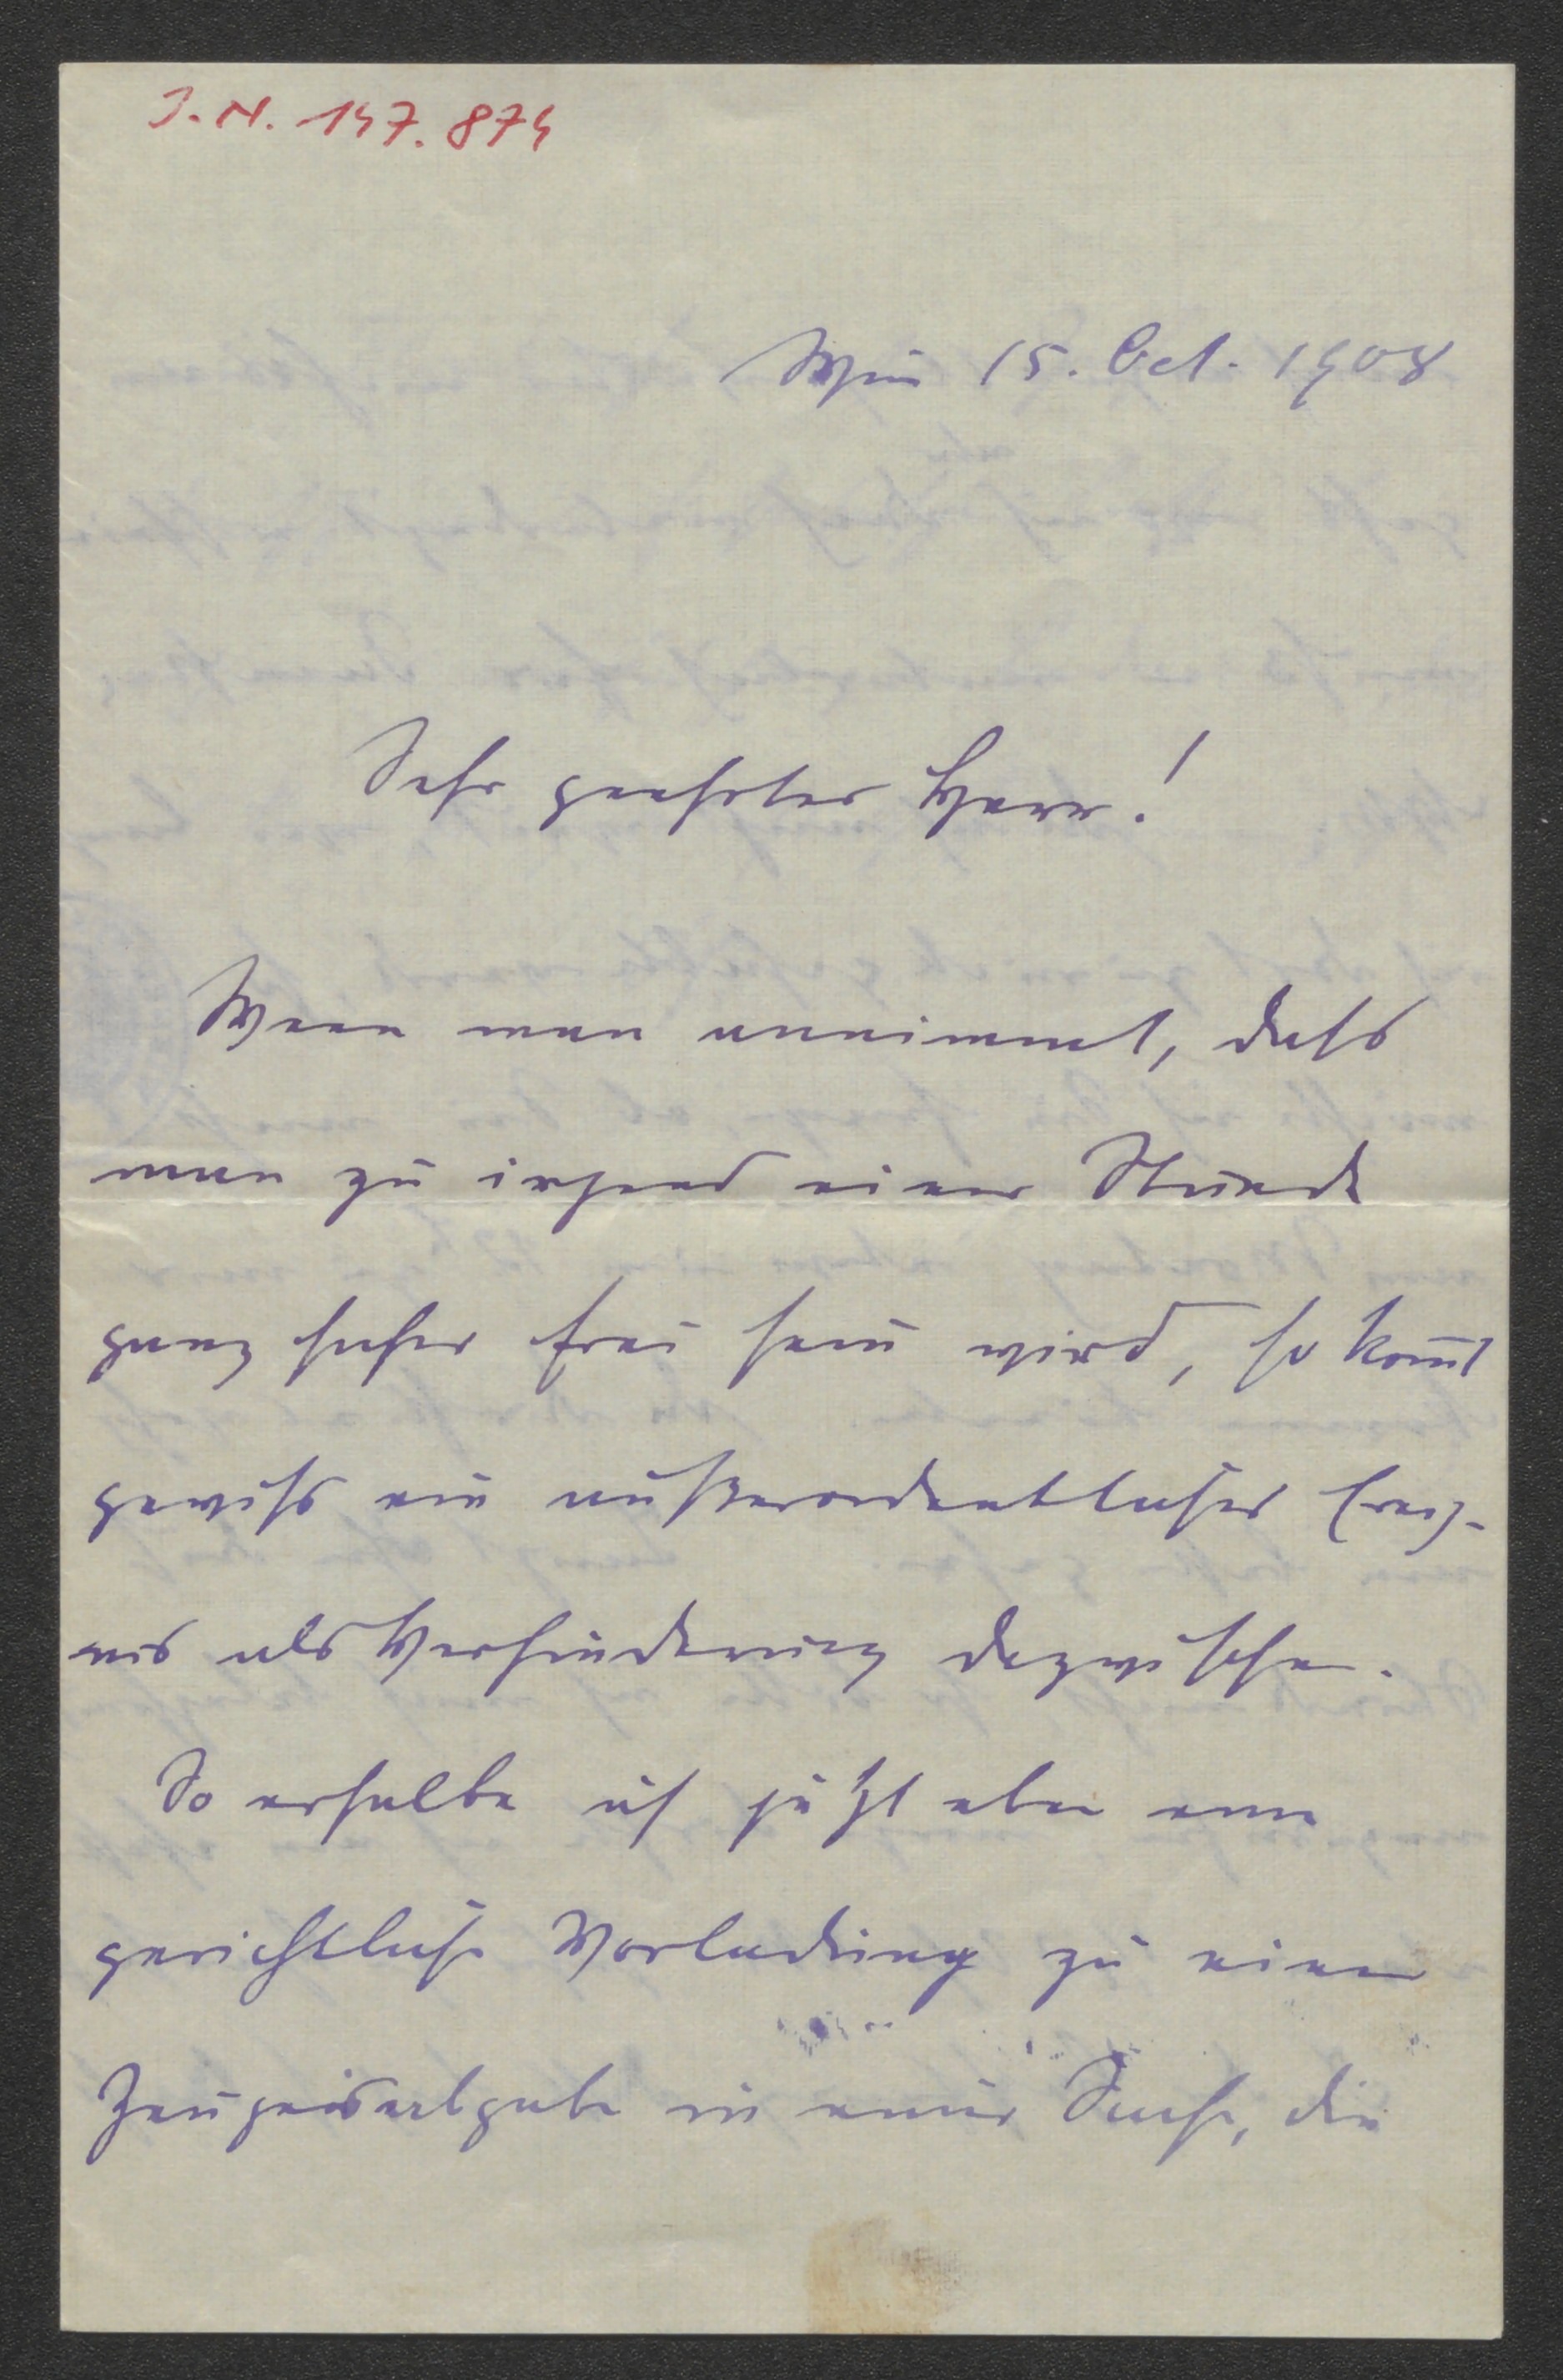 J. N. 147.874
Wien 15. Oct. 1908
Sehr geehrter Herr!
Wenn man annimmt, dass
man zu irgend einer Stunde
ganz sicher frei sein wird, so kom̄t
gewiss ein außerordentliches Ereig-
nis als Verhinderung dazwischen.
So erhalte ich jetzt eben eine
gerichtliche Vorladung zu einer
Zeugnisabgabe in einer Sache, die